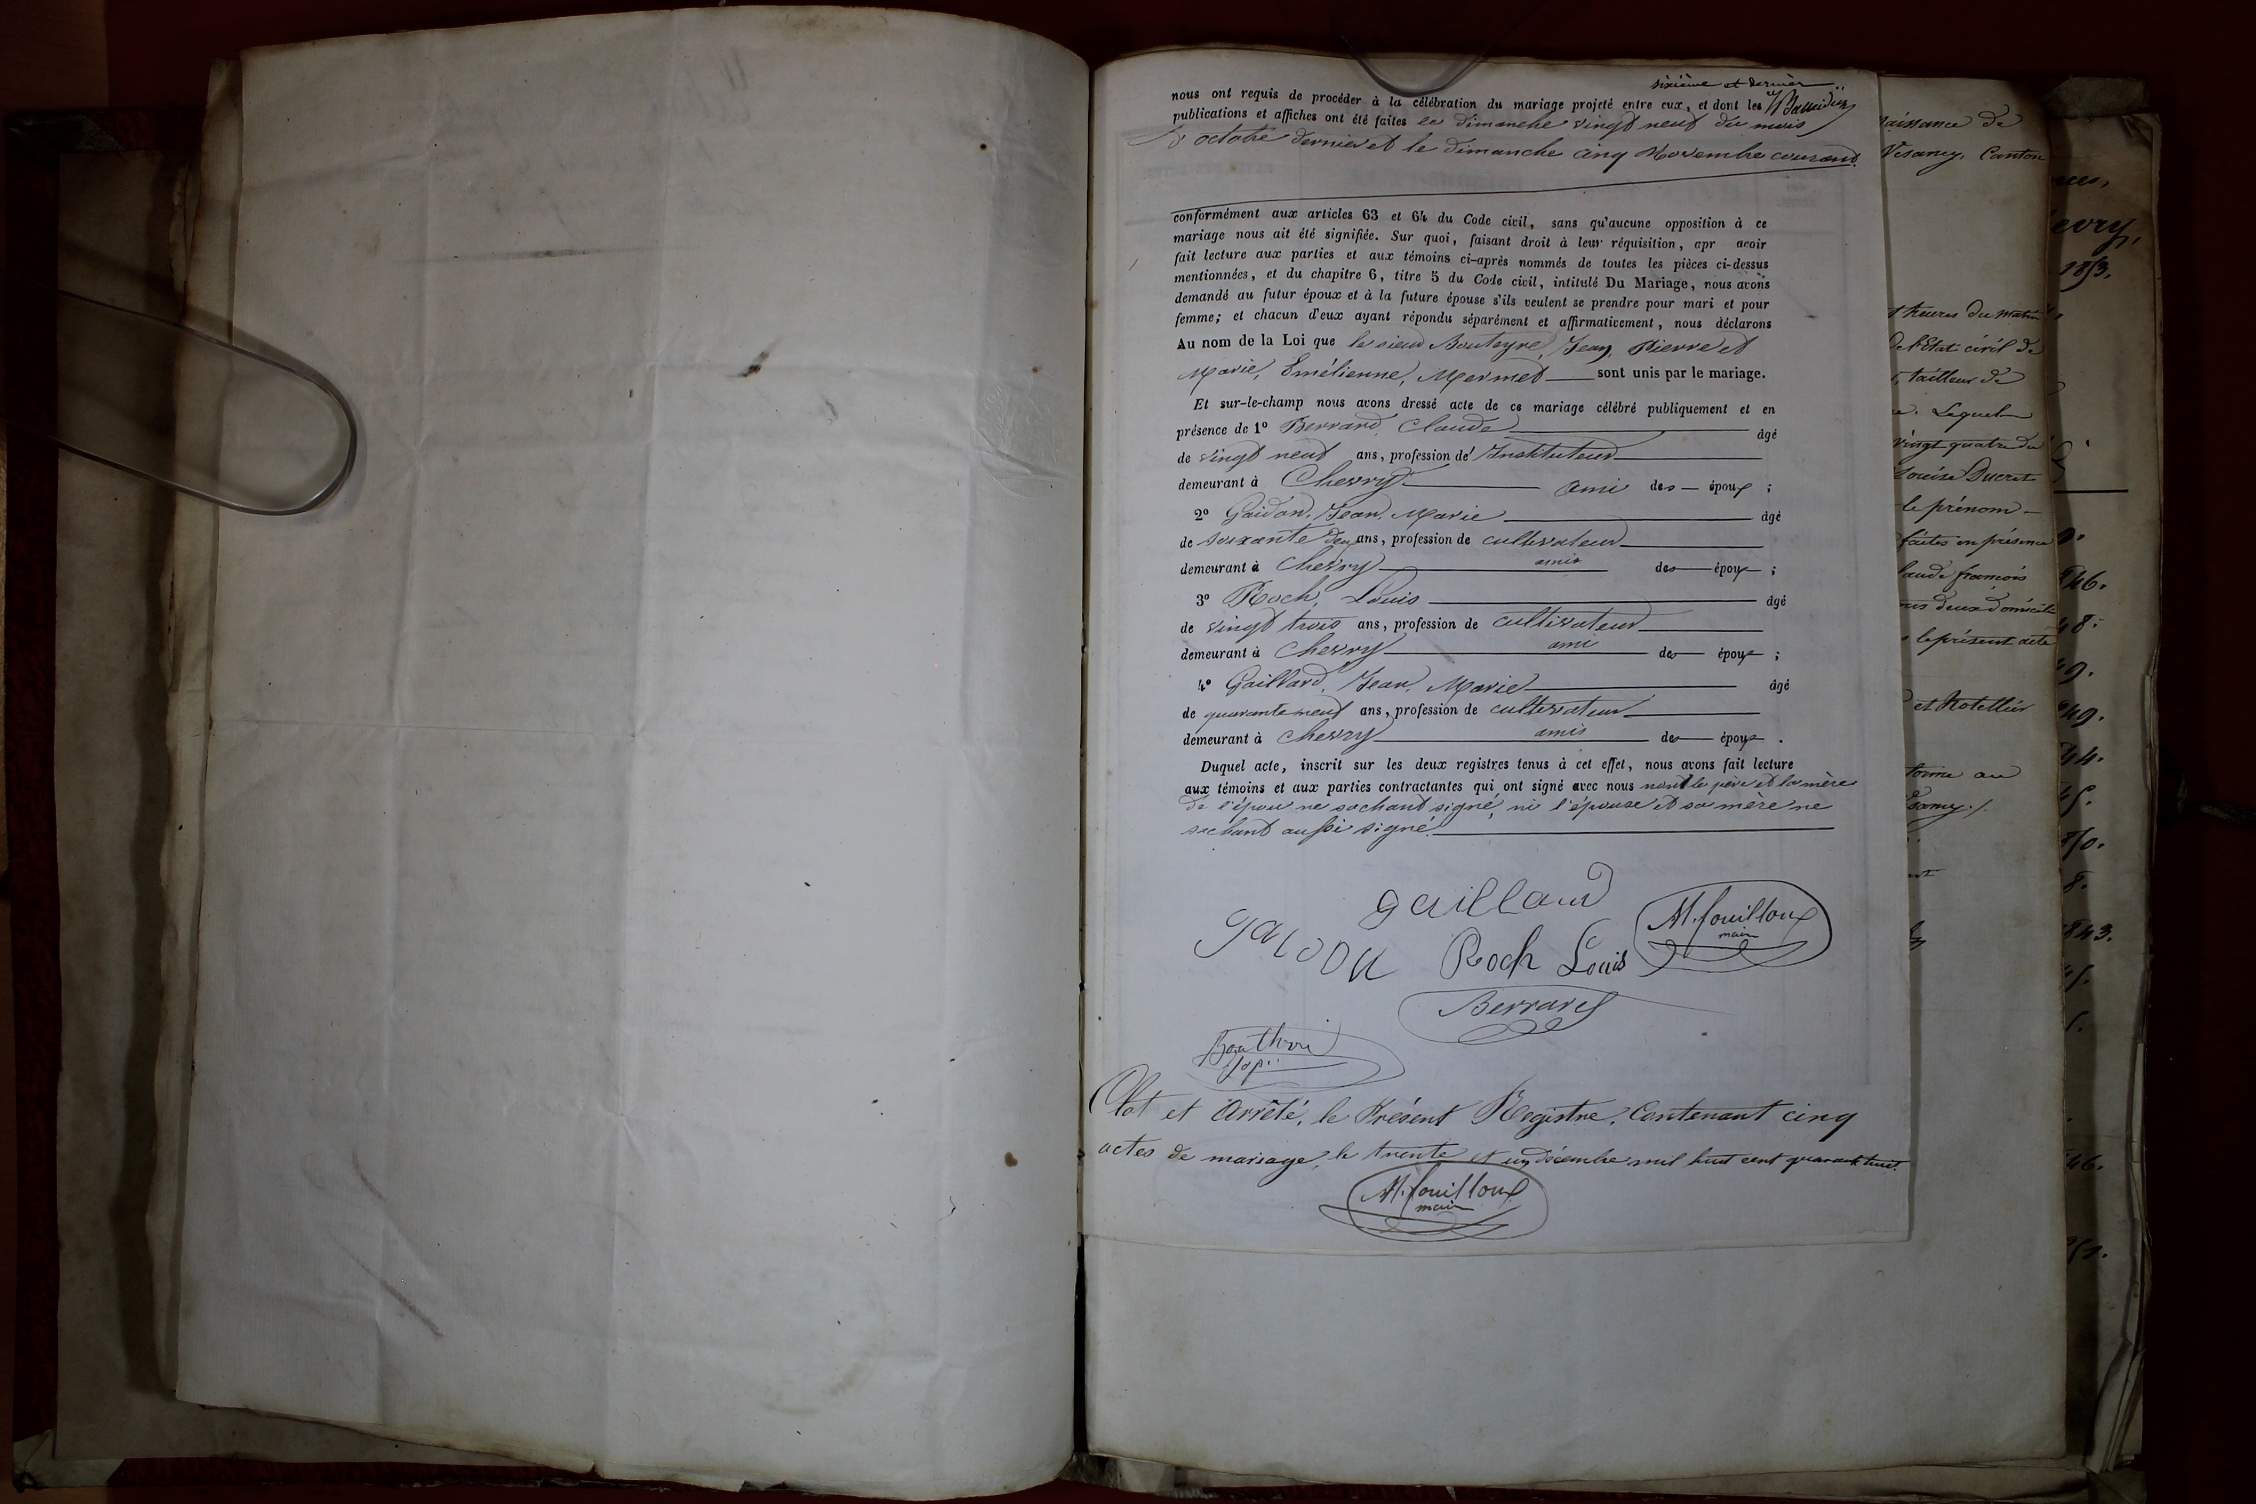 sixième et dernier
nous ont requis de procéder à la célébration du mariage projeté entre eux, et dont les
publications et affiches ont été faites le dimanche vingt neuf du mois
d'octobre dernier et le dimanche cinq Novembre courant.
conformément aux articles 63 et 64 du Code civil, sans qu'aucune opposition à ce
mariage nous ait été signifiée. Sur quoi, faisant droit à leur réquisition, apr avoir
fait lecture aux parties et aux témoins ci-après nommés de toutes les pièces ci-dessus
mentionnées, et du chapitre 6, titre 5 du Code civil, intitulé Du Mariage, nous avons
demandé au futur époux et à la future épouse s'ils veulent se prendre pour mari et pour
femme; et chacun d'eux ayant répondu séparément et affirmativement, nous déclarons
Au nom de la Loi que le sieur Bouteyre, Jean, Pierre et
Marie, Emélienne, Mermet sont unis par le mariage.
Et sur-le-champ nous avons dressé acte de ce mariage célébré publiquement et en
présence de 1º Berrard, Claude âgé
de vingt neuf ans, profession de Instituteur
demeurant à Chevry ami des époux ;
2º Gaidon, Jean, Marie âgé
de soixante deux ans, profession de cultivateur
demeurant à Chevry amis des époux ;
3º Roch, Louis âgé
de vingt trois ans, profession de cultivateur
demeurant à Chevry ami des époux ;
4º Gaillard, Jean, Marie âgé
de quarante neuf ans, profession de cultivateur
demeurant à Chevry amis des époux .
Duquel acte, inscrit sur les deux registres tenus à cet effet, nous avons fait lecture
aux témoins et aux parties contractantes qui ont signé avec nous non le père et la mère
de l'époux ne sachant signé, ni l'épouse et sa mère ne
sachant aussi signé.
gaillard
M. fouilloux
maire
gaidon Roch Louis
Berrard
Clot et Arrêté, le Présent Registre, Contenant cinq
actes de mariage, le trente et un décembre mil huit cent quarante huit.
M. fouilloux
maire
naissance de
Vesancy, Canton
heures du matin
de l'Etat civil de
tailleur de
Lequel
vingt quatre du
Louise Ducret
le prénom
faites en présence
Claude françois
tous deux domicilié
le présent acte
et Hotellier
evry,
1853.
46.
48.
49.
44.
1843.
46.